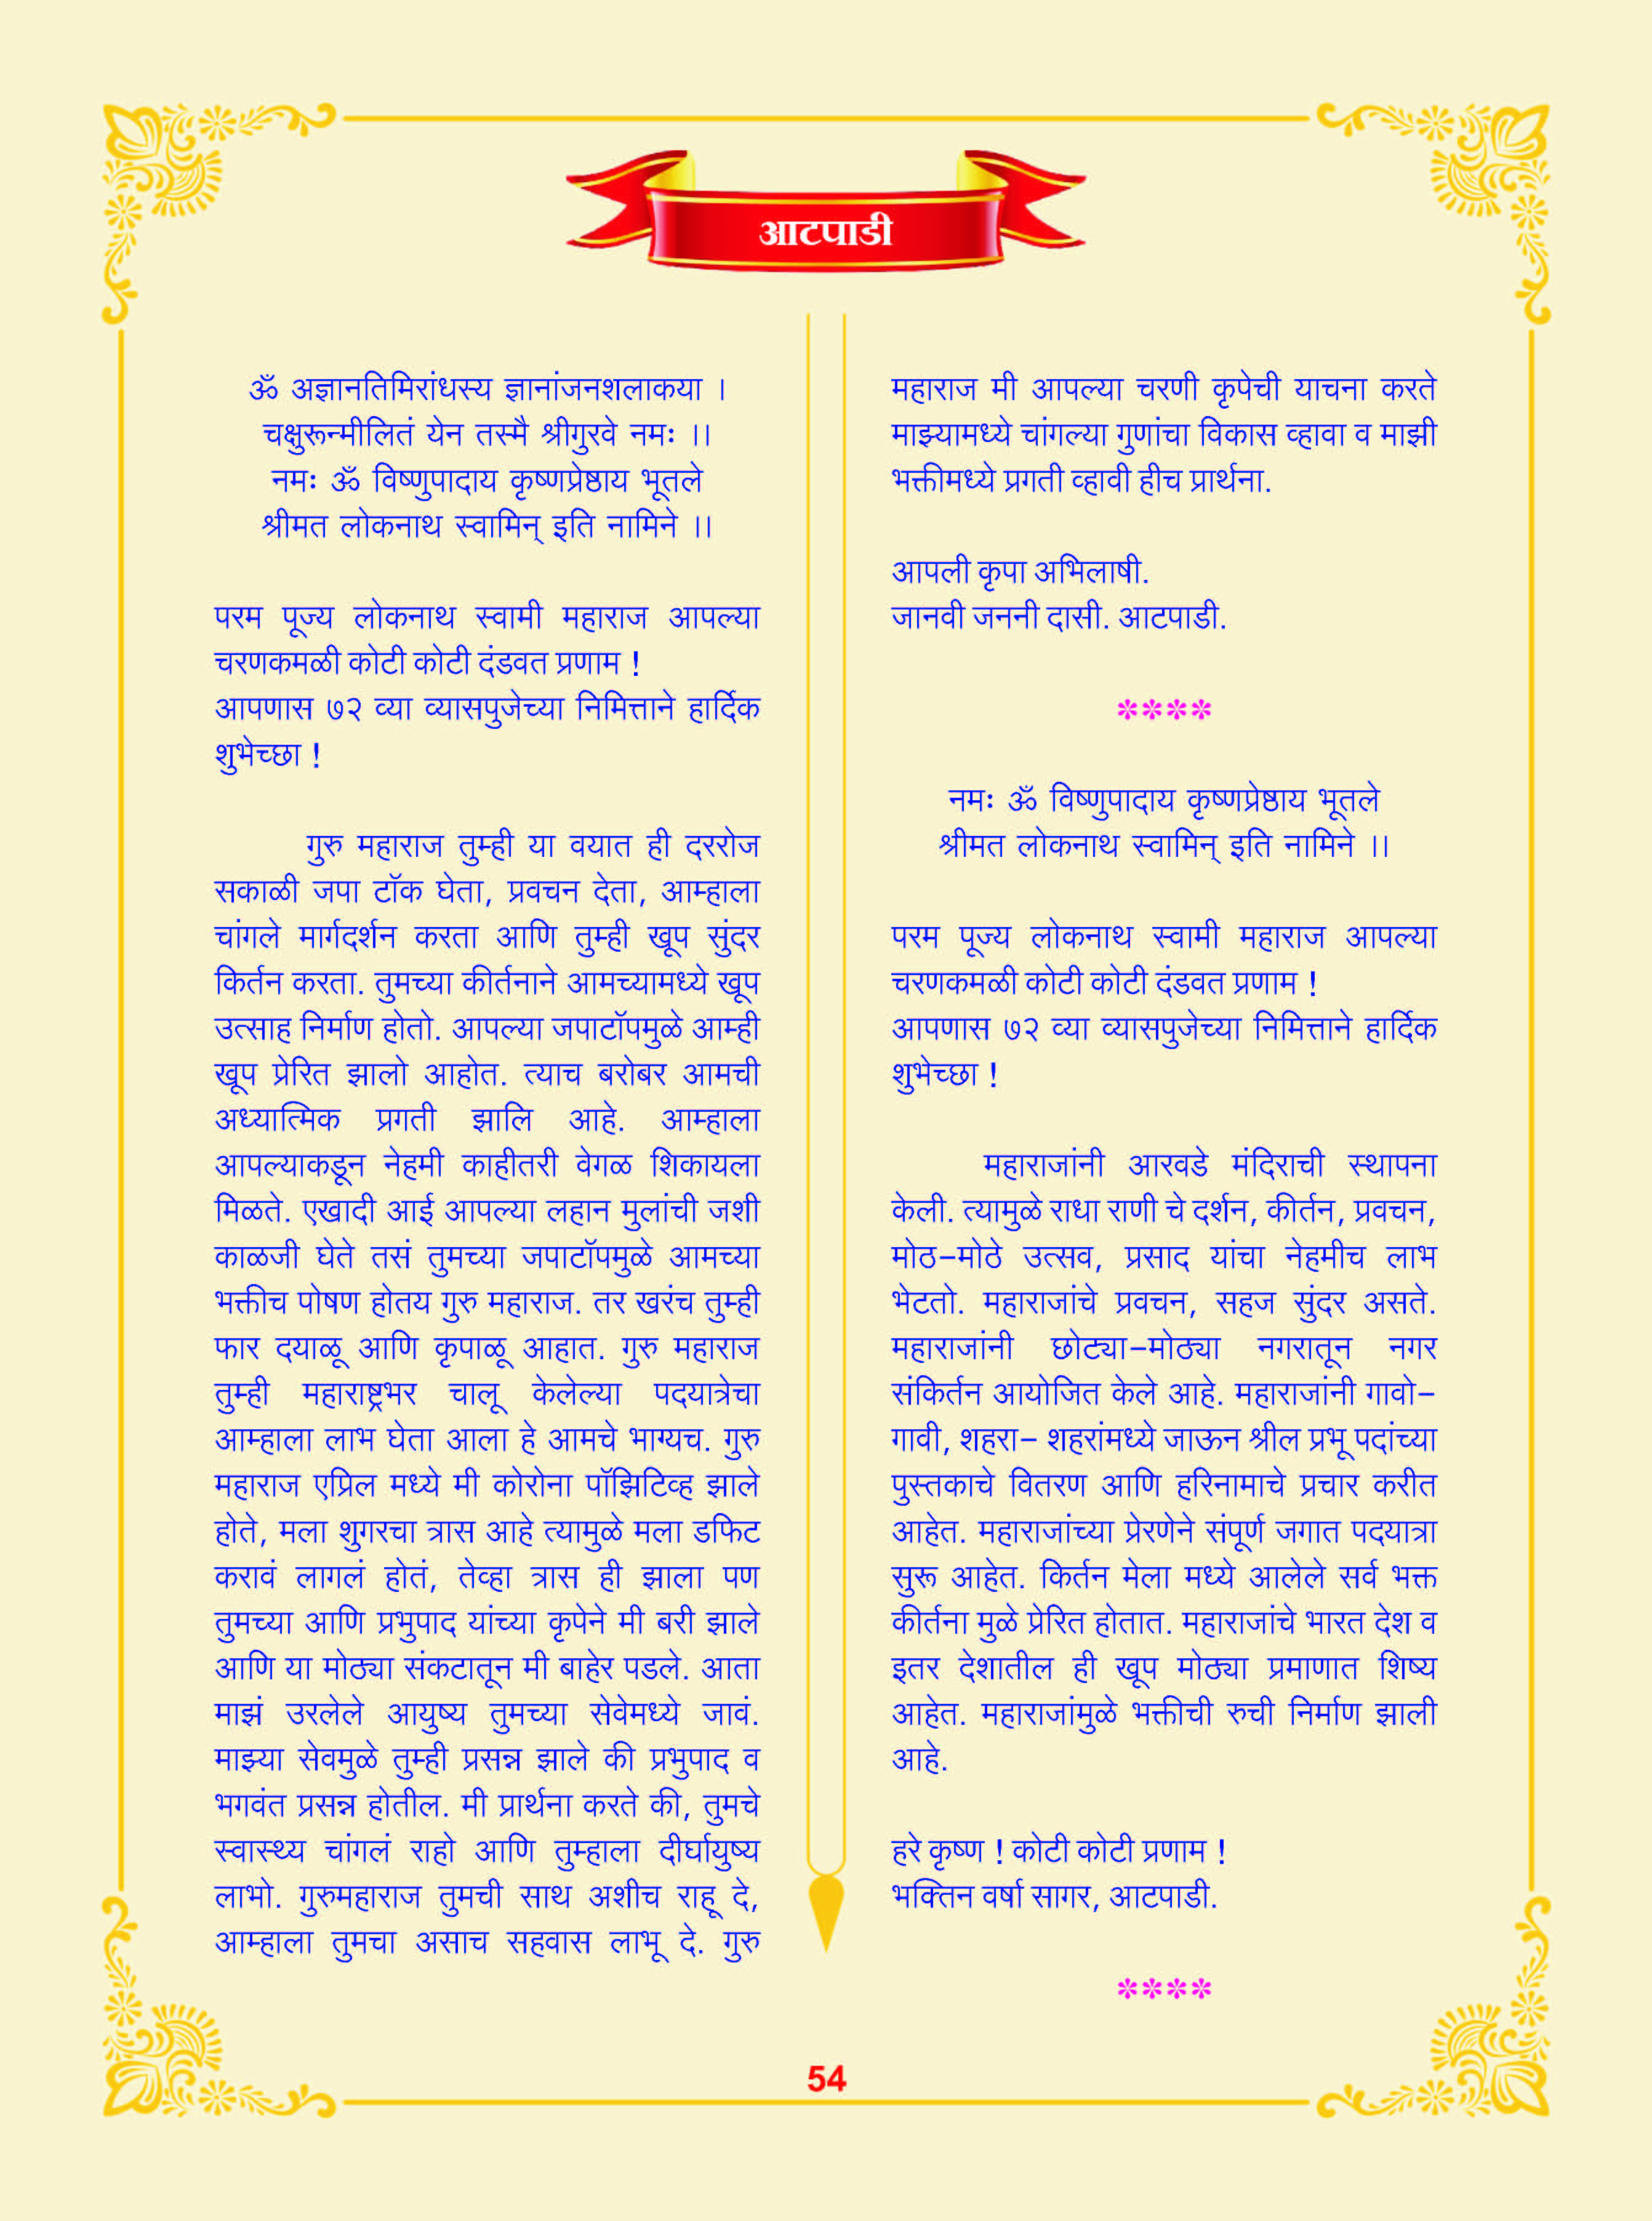 आटपाडी
ॐ अज्ञानतिमिरांधस्य ज्ञानांजनशलाकया ।
चक्षुरून्मीलितं येन तस्मै श्रीगुरवे नमः ।।
नमः ॐ विष्णुपादाय कृष्णप्रेष्ठाय भूतले
श्रीमत लोकनाथ स्वामिन् इति नामिने ।।
परम पूज्य लोकनाथ स्वामी महाराज आपल्या
चरणकमळी कोटी कोटी दंडवत प्रणाम !
आपणास ७२ व्या व्यासपुजेच्या निमित्ताने हार्दिक
शुभेच्छा !
गुरु महाराज तुम्ही या वयात ही दररोज
सकाळी जपा टॉक घेता, प्रवचन देता, आम्हाला
चांगले मार्गदर्शन करता आणि तुम्ही खूप सुंदर
किर्तन करता. तुमच्या कीर्तनाने आमच्यामध्ये खूप
उत्साह निर्माण होतो. आपल्या जपाटॉपमुळे आम्ही
खूप प्रेरित झालो आहोत. त्याच बरोबर आमची
अध्यात्मिक प्रगती झालि आहे. आम्हाला
आपल्याकडून नेहमी काहीतरी वेगळ शिकायला
मिळते. एखादी आई आपल्या लहान मुलांची जशी
काळजी घेते तसं तुमच्या जपाटॉपमुळे आमच्या
भक्तीच पोषण होतय गुरु महाराज. तर खरंच तुम्ही
फार दयाळू आणि कृपाळू आहात. गुरु महाराज
तुम्ही महाराष्ट्रभर चालू केलेल्या पदयात्रेचा
आम्हाला लाभ घेता आला हे आमचे भाग्यच. गुरु
महाराज एप्रिल मध्ये मी कोरोना पॉझिटिव्ह झाले
होते, मला शुगरचा त्रास आहे त्यामुळे मला डफिट
करावं लागलं होतं, तेव्हा त्रास ही झाला पण
तुमच्या आणि प्रभुपाद यांच्या कृपेने मी बरी झाले
आणि या मोठ्या संकटातून मी बाहेर पडले. आता
माझं उरलेले आयुष्य तुमच्या सेवेमध्ये जावं.
माझ्या सेवमुळे तुम्ही प्रसन्न झाले की प्रभुपाद व
भगवंत प्रसन्न होतील. मी प्रार्थना करते की, तुमचे
स्वास्थ्य चांगलं राहो आणि तुम्हाला दीर्घायुष्य
लाभो. गुरुमहाराज तुमची साथ अशीच राहू दे,
आम्हाला तुमचा असाच सहवास लाभू दे. गुरु
महाराज मी आपल्या चरणी कृपेची याचना करते
माझ्यामध्ये चांगल्या गुणांचा विकास व्हावा व माझी
भक्तीमध्ये प्रगती व्हावी हीच प्रार्थना.
आपली कृपा अभिलाषी.
जानवी जननी दासी. आटपाडी.
****
नमः ॐ विष्णुपादाय कृष्णप्रेष्ठाय भूतले
श्रीमत लोकनाथ स्वामिन् इति नामिने ।।
परम पूज्य लोकनाथ स्वामी महाराज आपल्या
चरणकमळी कोटी कोटी दंडवत प्रणाम !
आपणास ७२ व्या व्यासपुजेच्या निमित्ताने हार्दिक
शुभेच्छा !
महाराजांनी आरवडे मंदिराची स्थापना
केली. त्यामुळे राधा राणी चे दर्शन, कीर्तन, प्रवचन,
मोठ-मोठे उत्सव, प्रसाद यांचा नेहमीच लाभ
भेटतो. महाराजांचे प्रवचन, सहज सुंदर असते.
महाराजांनी छोट्या-मोठ्या नगरातून नगर
संकिर्तन आयोजित केले आहे. महाराजांनी गावो-
गावी, शहरा- शहरांमध्ये जाऊन श्रील प्रभू पदांच्या
पुस्तकाचे वितरण आणि हरिनामाचे प्रचार करीत
आहेत. महाराजांच्या प्रेरणेने संपूर्ण जगात पदयात्रा
सुरू आहेत. किर्तन मेला मध्ये आलेले सर्व भक्त
कीर्तना मुळे प्रेरित होतात. महाराजांचे भारत देश व
इतर देशातील ही खूप मोठ्या प्रमाणात शिष्य
आहेत. महाराजांमुळे भक्तीची रुची निर्माण झाली
आहे.
हरे कृष्ण ! कोटी कोटी प्रणाम !
भक्तिन वर्षा सागर, आटपाडी.
****
54